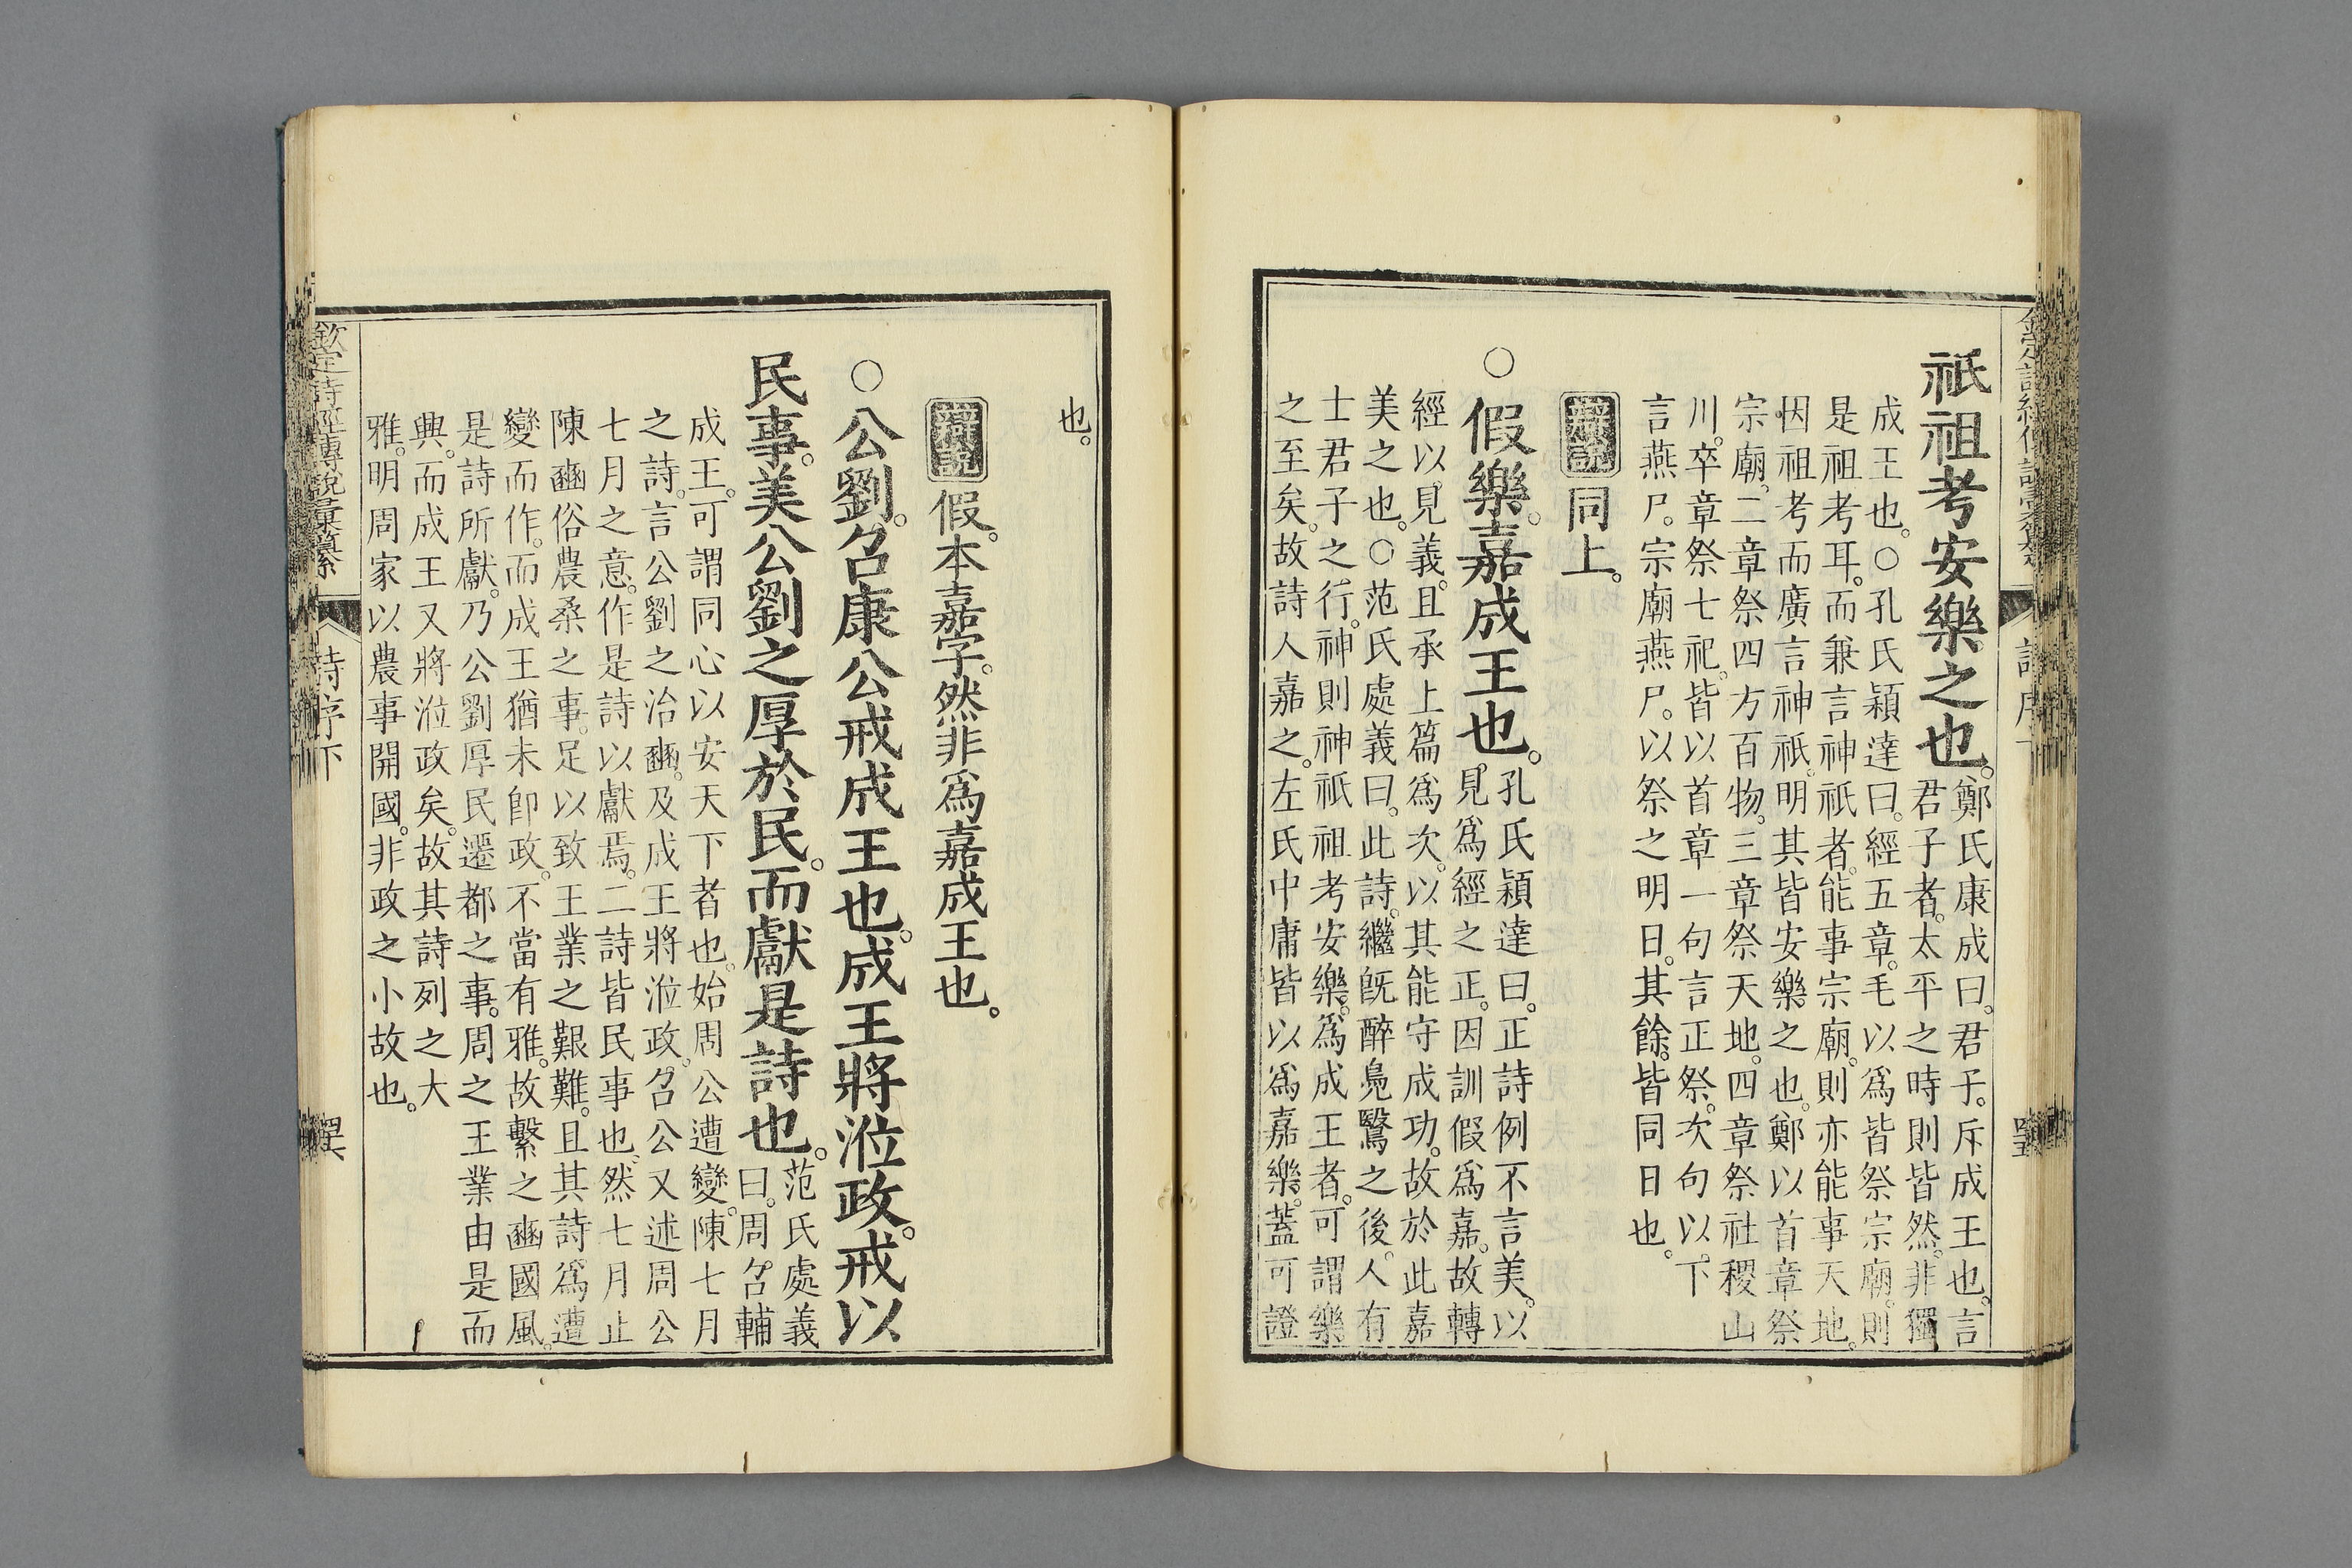 祇祖考安樂之也。鄭氏康成曰。君子。斥成王也。言
君子者。太平之時則皆然。非獨
成王也。○孔氏穎達曰。經五章。毛以爲皆祭宗廟。則
是祖考耳。而兼言神祇者。能事宗廟。則亦能事天地。
因祖考而廣言神祇。明其皆安樂之也。鄭以首章祭
宗廟。二章祭四方百物。三章祭天地。四章祭社稷山
川。卒章祭七祀。皆以首章一句言正祭。次句以下
言燕尸。宗廟燕尸。以祭之明日。其餘。皆同日也。
辯說 同上。
○假樂。嘉成王也。孔氏穎達曰。正詩例不言美。以
見爲經之正。因訓假爲嘉。故轉
經以見義。且承上篇爲次。以其能守成功。故於此嘉
美之也。○范氏處義曰。此詩。繼旣醉鳧鷖之後。人有
士君子之行。神則神祇祖考安樂。爲成王者。可謂樂
之至矣。故詩人嘉之。左氏中庸皆以爲嘉樂。蓋可證
也。
辯說 假。本嘉字。然非爲嘉成王也。
○公劉。召康公戒成王也。成王將涖政。戒以
民事。美公劉之厚於民。而獻是詩也。范氏處義
曰。周召輔
成王。可謂同心以安天下者也。始周公遭變。陳七月
之詩。言公劉之治豳。及成王將涖政。召公又述周公
七月之意。作是詩以獻焉。二詩皆民事也。然七月止
陳豳俗農桑之事。足以致王業之艱難。且其詩。爲遭
變而作。而成王猶未卽政。不當有雅。故繫之豳國風。
是詩所獻。乃公劉厚民遷都之事。周之王業由是而
興。而成王又將涖政矣。故其詩列之大
雅。明周家以農事開國。非政之小故也。
欽定詩經傳說彙纂 詩序下